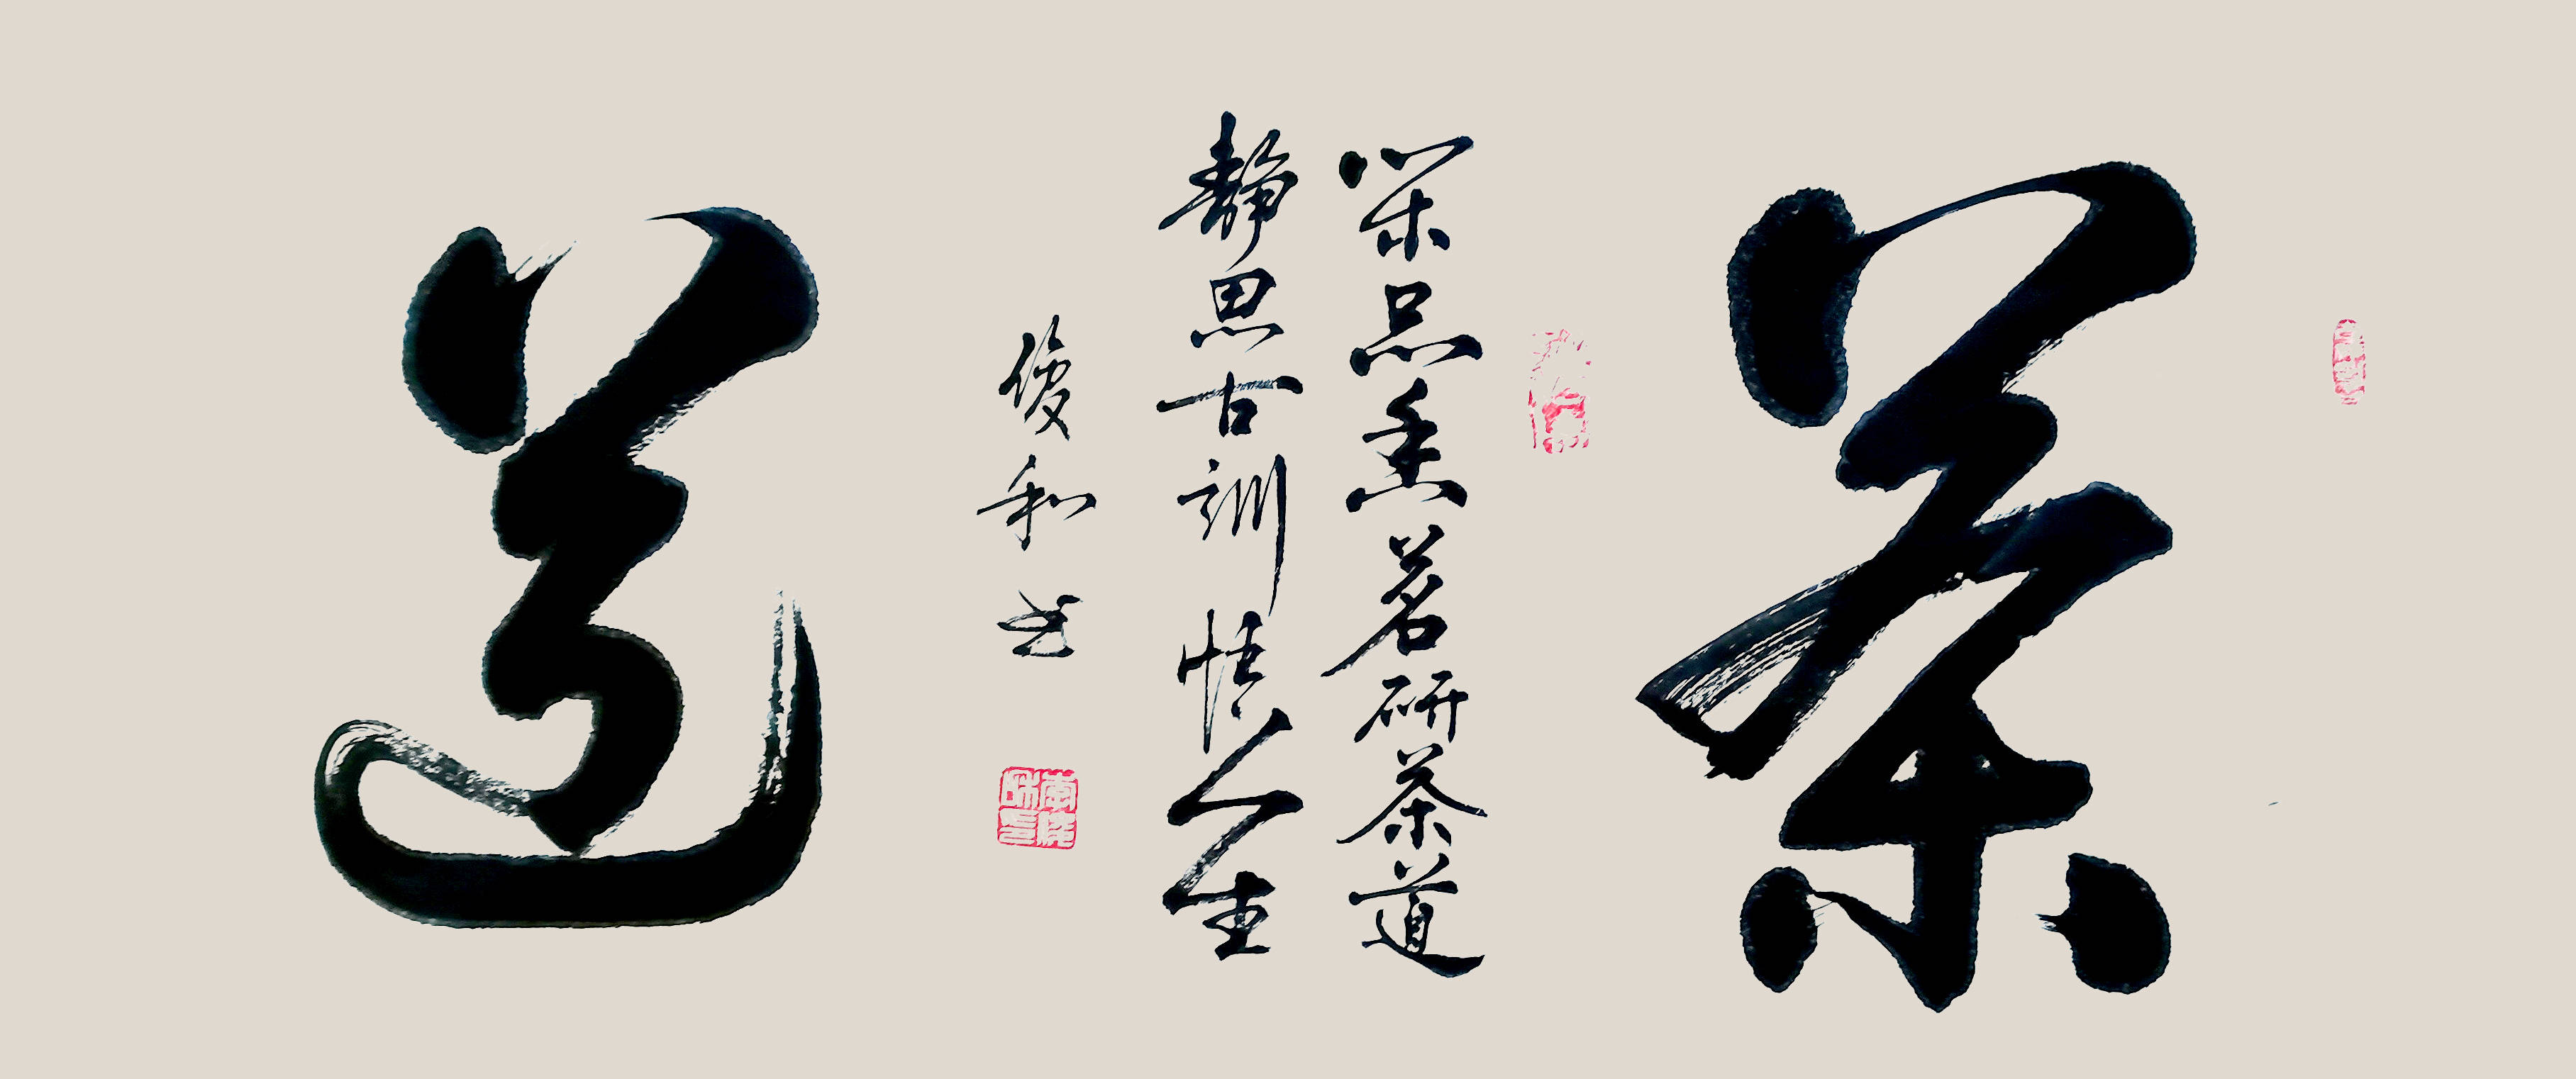 茶
闲品香茗研茶道
静思古训悟人生
俊和书
道